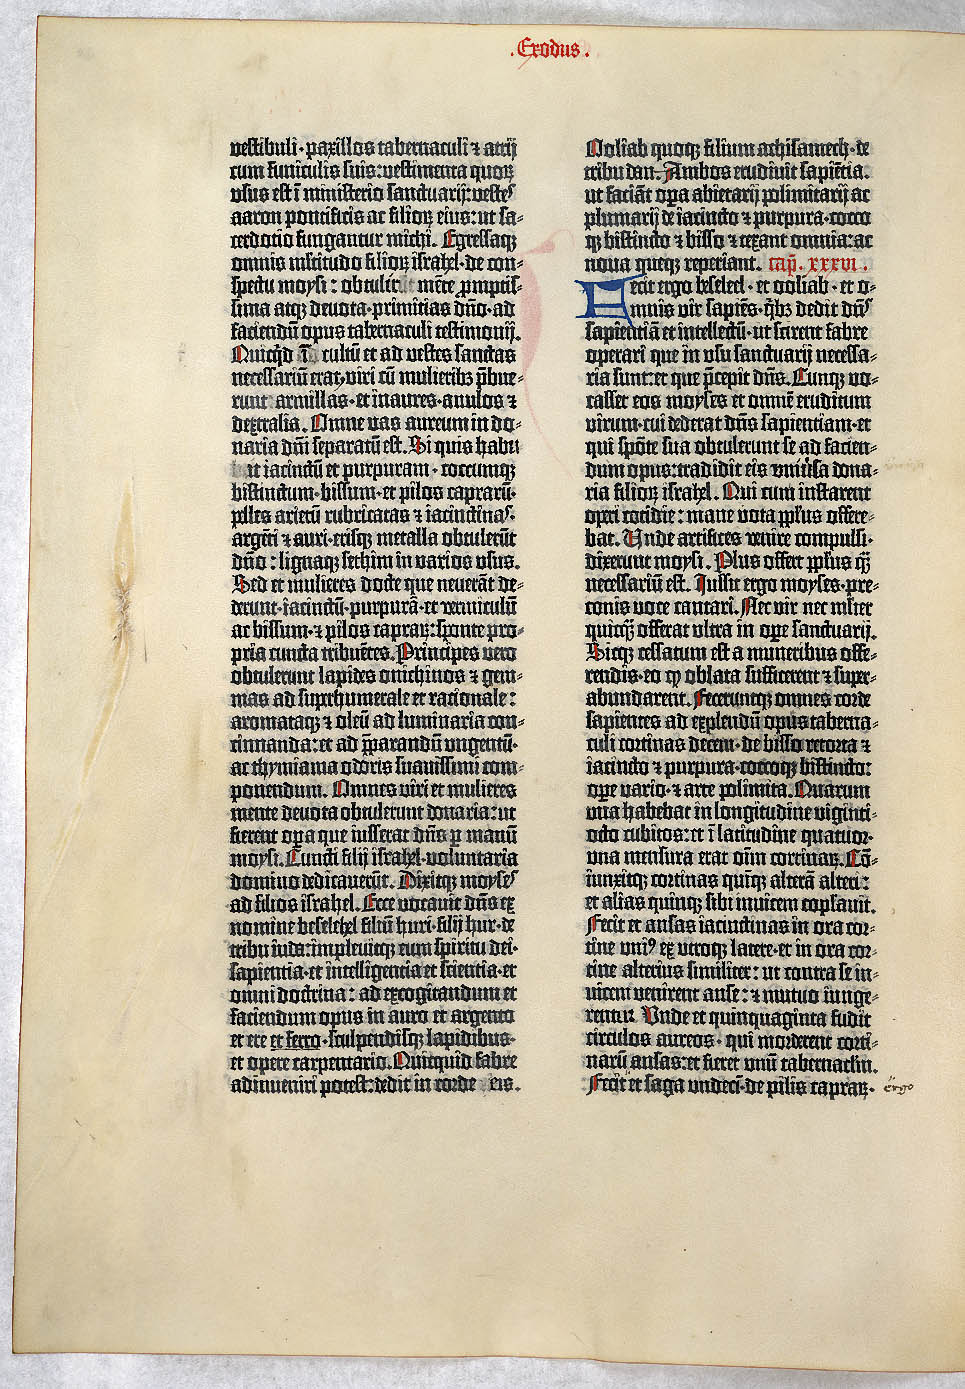 .Exodus.
vestibuli· paxillos tabernaculi ⁊ atrij
cum funiculis suis: vestimenta quoꝝ
usus est ī ministerio sanctuarij: veste⁹
aaron pontificis ac filioꝝ eius: ut sa-
cerdotio fungantur michi. Egressaqꝫ
omnis ml̄titudo filioꝝ israhel· de con-
spectu moysi: obtulit mēte ꝓmptis-
sima atqꝫ devota· primitias dn̄o· ad
faciendū opus tabernaculi testimonij.
Quicq̄d ī cultū et ad vestes sanctas
necessariū erat, viri cū mulieribꝫ p̄bue-
runt armillas· et inaures· anulos ⁊
dextralia. Omne vas aureum in do-
naria dn̄i separatū est. Si quis habu
it iacinctū et purpuram· coccumqꝫ
bistinctum· bissum· et pilos caprarū·
pelles arietū rubricatas ⁊ iacinctinas·
argēti ⁊ auri· erisqꝫ metalla obtulerūt
dn̄o: lignaqꝫ sethim in varios usus.
Sed et mulieres docte que neuerāt de-
derunt· iacinctū· purpurā· et vermiculū
ac bissum· ⁊ pilos capraꝝ: sponte pro-
pria cuncta tribuētes. Principes vero
obtulerunt lapides onichinos ⁊ gem-
mas ad suꝑhumerale et rationale:
aromataqꝫ ⁊ oleū ad luminaria con-
cinnanda: et ad p̄parandū ungentū·
ac thymiama odoris suavissimi com-
ponendum. Omnes viri et mulieres
mente devota obtulerunt donaria: ut
fierent oꝑa que iusserat dn̄s ꝑ manū
moysi. Cuncti filij israhel· voluntaria
domino dedicaverūt. Dixitqꝫ moyses
ad filios israhel. Ecce vocavit dn̄s ex
nomine beselehel filiū huri· filij hur· de
tribu iuda: implevitqꝫ eum spiritu dei·
sapientia· et intelligentia et scientia· et
omni doctrina: ad excogitandum et
faciendum opus in auro et argento
et ere et ferro· sculpendisqꝫ lapidibus·
et opere carpentario. Quicquid fabre
adinveniri potest: dedit in corde eis.
Ooliab quoqꝫ filium achisamech· de
tribu dan. Ambos erudivit sapiētia.
ut faciāt oꝑa abietarij polimitarij ac
plumarij de iacincto ⁊ purpura· cocco
qꝫ bistincto ⁊ bisso ⁊ texant omnia: ac
nova queqꝫ reperiant. cap̄. xxxvi.
Fecit ergo beseleel· et ooliab· et o-
mnis vir sapiēs· q̄bꝫ dedit dn̄s
sapientiā et intellectū· ut scirent fabre
operari que in usu sanctuarij necessa-
ria sunt: et que p̄cepit dn̄s. Cunqꝫ vo-
casset eos moyses et omnē eruditum
virum· cui dederat dn̄s sapientiam· et
qui spōte sua obtulerunt se ad facien-
dum opus: tradidit eis univ̄sa dona-
ria filioꝝ israhel. Qui cum instarent
operi cotidie: mane vota ppl̄us offere-
bat. Unde artifices venire compulsi·
dixerunt moysi. Plus offert ppl̄us q̄ꝫ
necessariū est. Iussit ergo moyses· pre-
conis voce cantari. Nec vir nec ml̄ier
quicq̄ꝫ offerat ultra in oꝑe sanctuarij.
Sicqꝫ cessatum est a muneribus offe-
rendis· eo ꝙ oblata sufficerent ⁊ super-
abundarent. Feceruntqꝫ omnes corde
sapientes ad explendū opus taberna-
culi cortinas decem· de bisso retorta ⁊
iacincto ⁊ purpura· coccoqꝫ bistincto:
oꝑe vario· ⁊ arte polimita. Quarum
una habebat in longitudine viginti-
octo cubitos: et ī latitudine quatuor·
una mensura erat oīm cortinaꝝ. Cō-
iunxitqꝫ cortinas quīqꝫ alterā alteri:
et alias quinqꝫ sibi invicem copulavit.
Fecit et ansas iacinctinas in ora cor-
tine uniꝰ ex utroqꝫ latere· et in ora cor-
tine alterius similiter: ut contra se in-
vicem venirent anse: ⁊ mutuo iunge-
rentur. Unde et quinquaginta fudit
circulos aureos· qui morderent corti-
narū ansas: et fieret unū tabernaclm̄.
Fecit et saga undeci· de pilis capraꝝ·
ergo